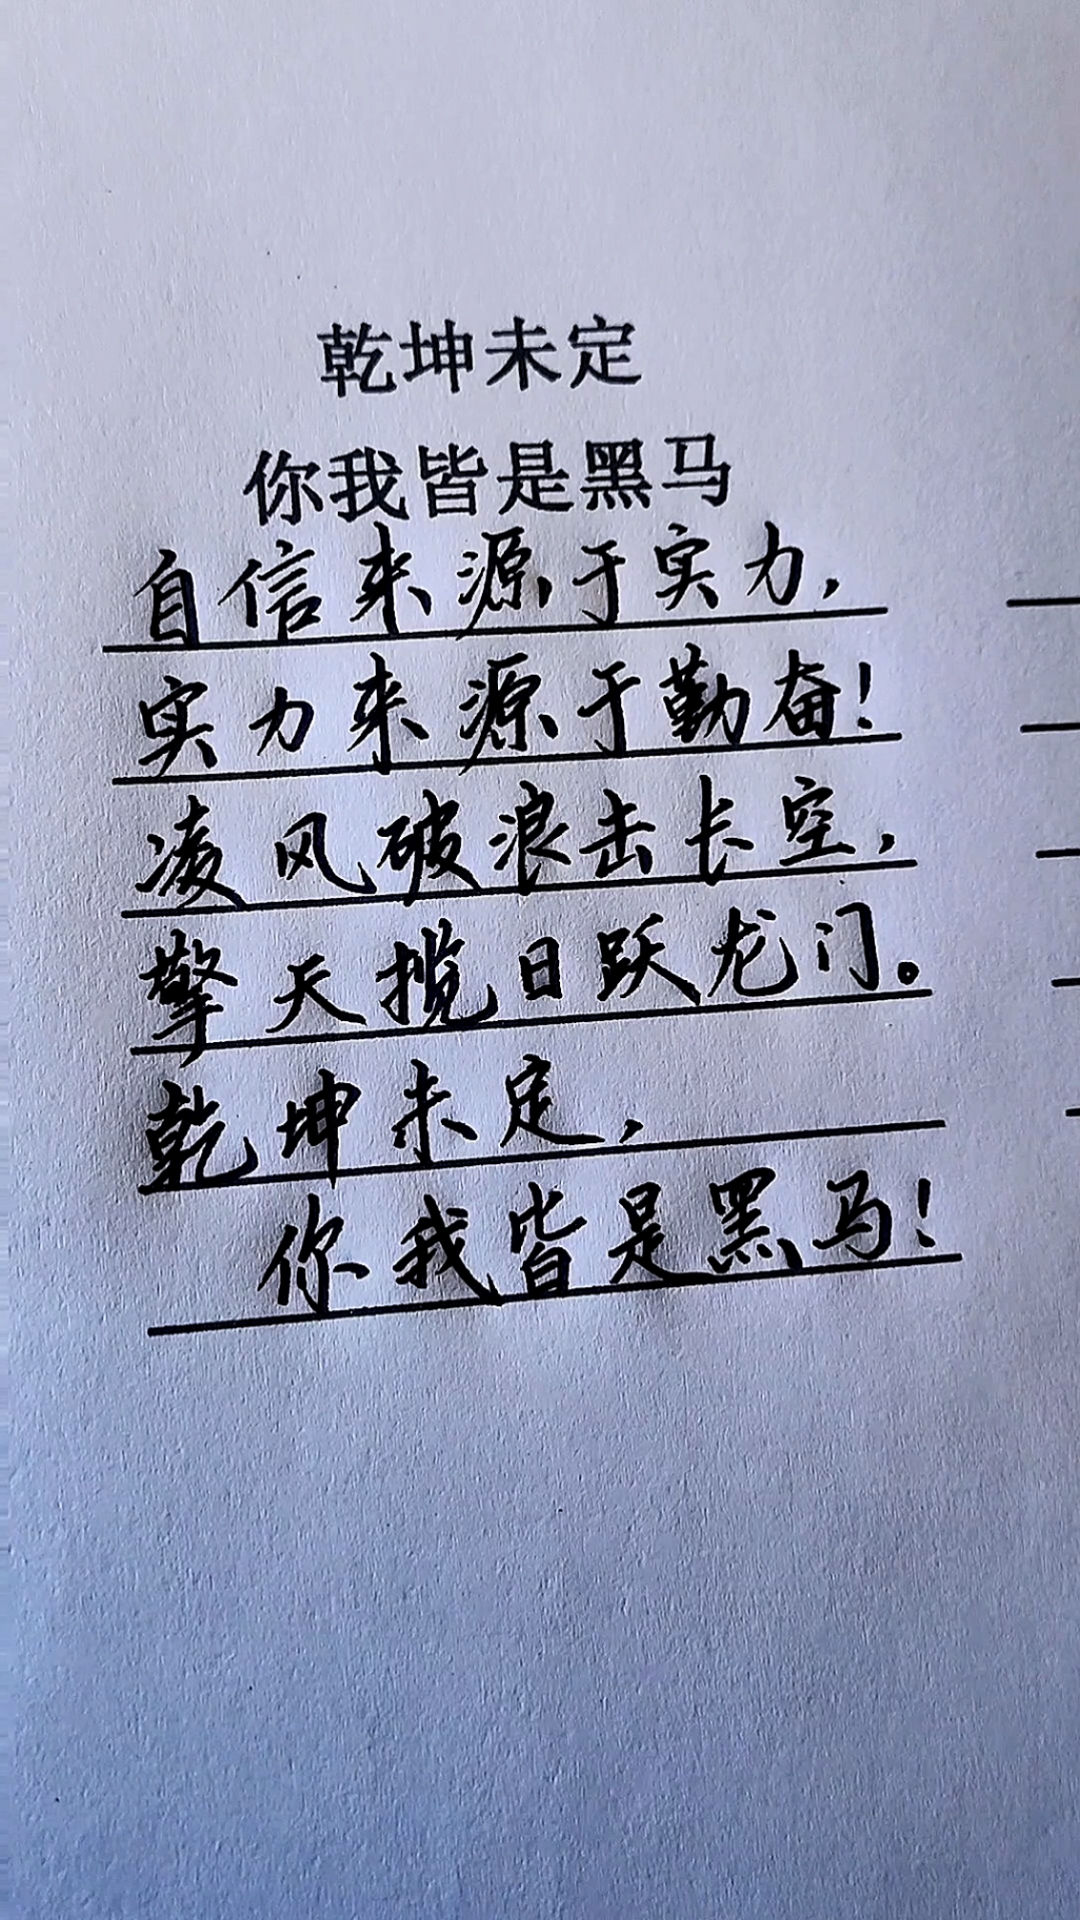 乾坤未定
你我皆是黑马
自信来源于实力,
实力来源于勤奋!
凌风破浪击长空,
擎天揽日跃龙门。
乾坤未定,
你我皆是黑马!